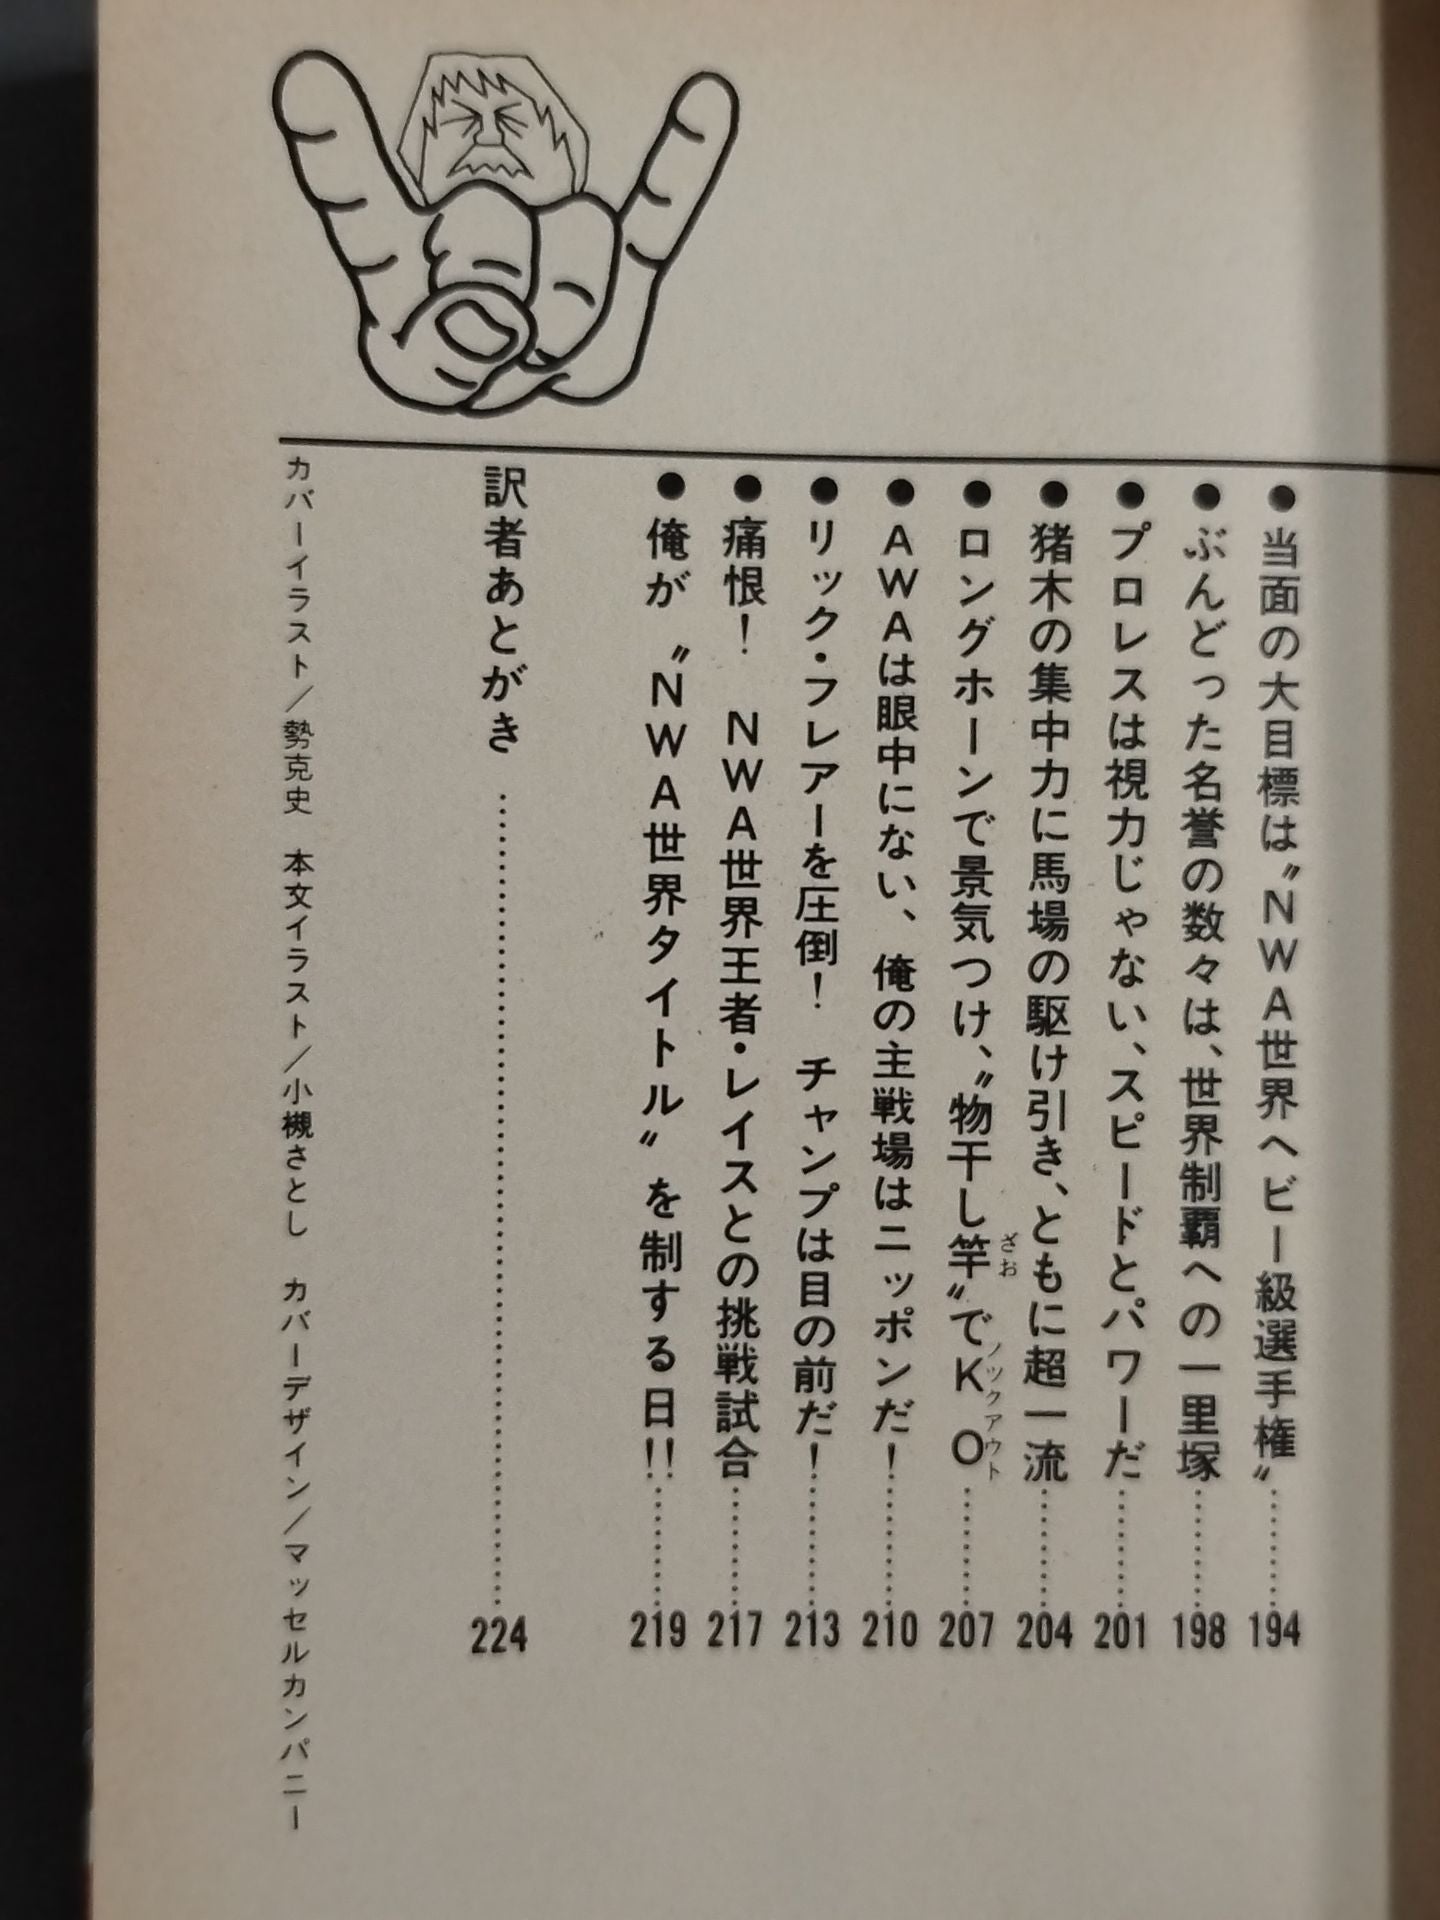 ●当面の大目標は〝NWA世界ヘビー級選手権〟……194
●ぶんどった名誉の数々は、世界制覇への一里塚……198
●プロレスは視力じゃない、スピードとパワーだ……201
●猪木の集中力に馬場の駆け引き、ともに超一流……204
●ロングホーンで景気つけ、〝物干し竿〟でKO……207
ざお
ノックアウト
●AWAは眼中にない、俺の主戦場はニッポンだ!……210
●リック・フレアーを圧倒! チャンプは目の前だ!……213
●痛恨! NWA世界王者・レイスとの挑戦試合……217
●俺が〝NWA世界タイトル〟を制する日!!……219
訳者あとがき……224
カバーイラスト/勢克史 本文イラスト/小槻さとし カバーデザイン/マッセルカンパニー